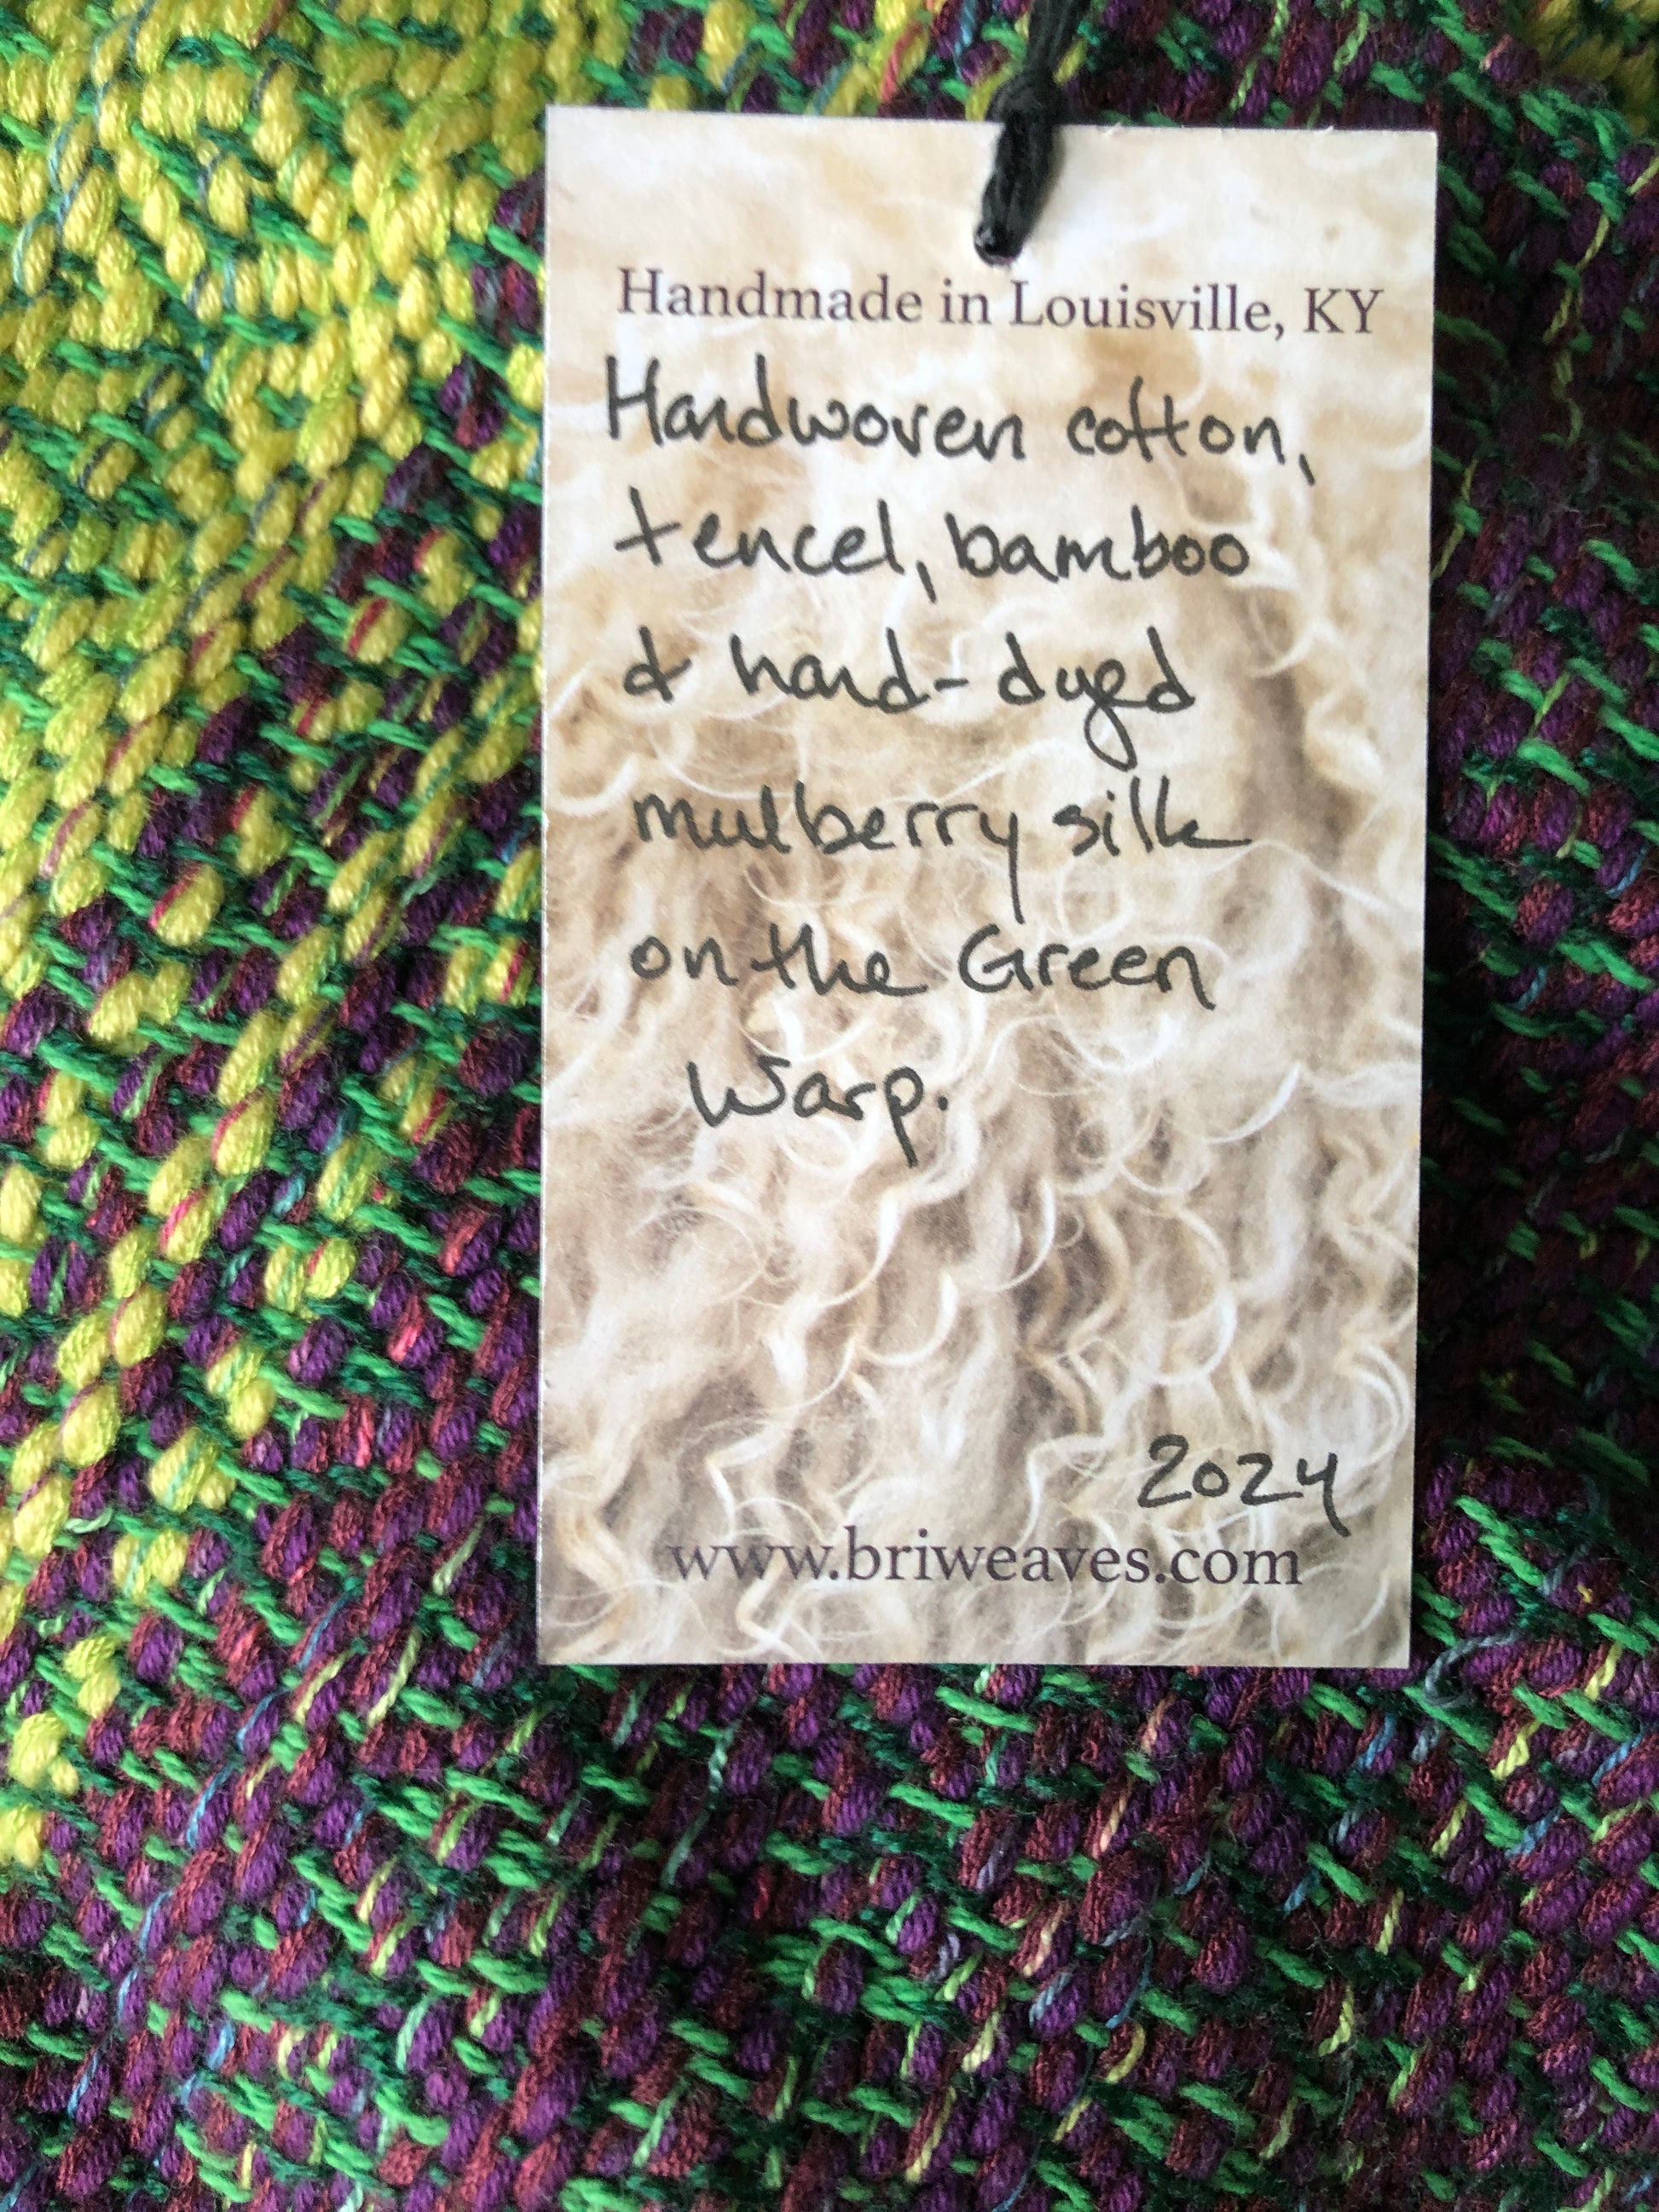 Handmade in Louisville, KY
Handwoven cotton,
tencel, bamboo
& hand-dyed
mulberry silk
on the Green
Warp.
2024
www.briweaves.com